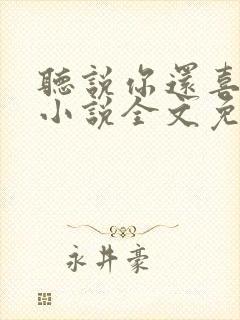 聽說你還喜
小說全文免
永井豪